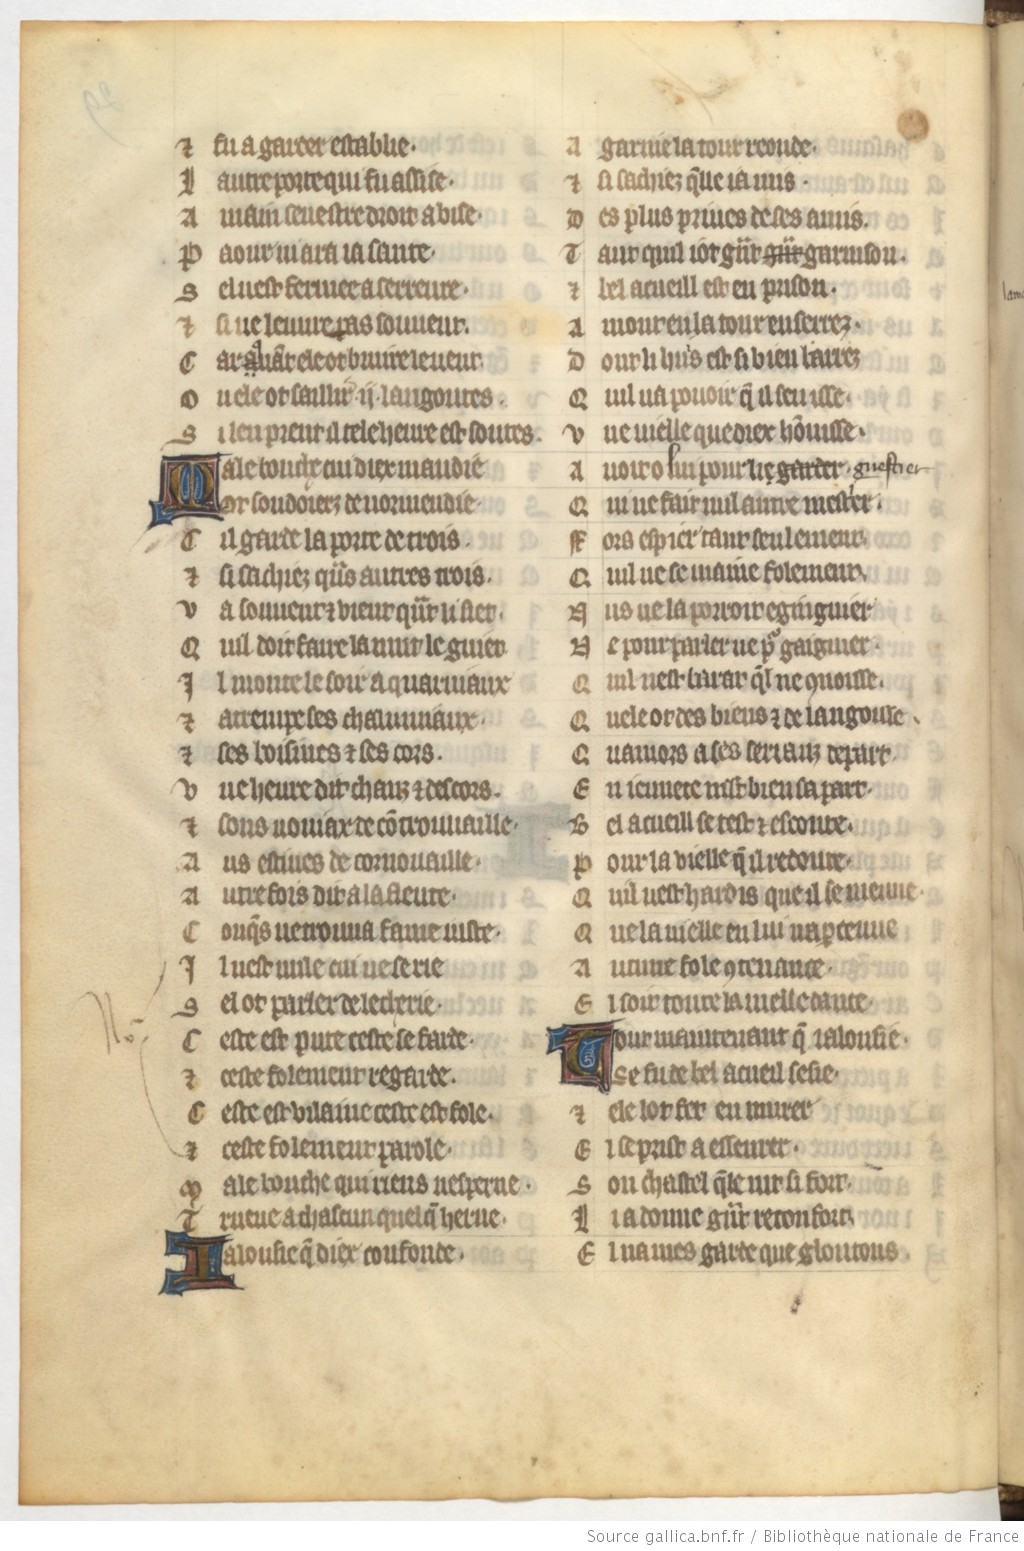 ⁊ fu a garder establie·
L autre porte qui fu assise·
A main senestre droit a bise·
P aour narra ia sante·
S el nest fermee a serreure·
⁊ si ne leuure pas souuent·
C ar quāt ele ot bruire le uent·
O u ele ot saillir ·ij· langoutes·
S i len prent il tele heure est doutes·
M ale bouche cui diex maudie
Ot soudoierz de normendie·
C il garde la porte detrois·
⁊ si sachiez qu̾s autres trois·
V a souuent ⁊ vient qn̄t li siet·
Q uil doit faire la nuit le guiet
I l monte le soir a quarniaux
⁊ atrempe ses chalumiaux·
⁊ ses boisines ⁊ ses cors·
V ne heure dit chanz ⁊ descors·
⁊ sons nouiax de cōtrouuaille·
A us estiues de cornouaille·
A utre fois dit a la fleute·
C onq̄s ne trouua fame iuste·
I l nest nule cui ne se rie
S el ot parler de lecherie·
C este est pute ceste se farde·
⁊ ceste folement regarde·
C este est vilaine ceste est fole·
⁊ ceste folement parole·
M ale bouche qui riens nesperne·
T rueue a chascun quelq̄ herne·
I alousie q̄ diex confonde·
No
A garnie la tour reonde·
⁊ si sachiez q̄ le ia mis·
D es plus priues de ses amis·
T ant quil i ot gn̄t gn̄t garnison·
⁊ bel acueill est en prison·
A mont en la tour enserrez·
D ont li huis est si bien barrez
Q uil na pouoir q̄ il sen isse·
V ne uielle que diex hōnisse·
A uoit o lui pour lie garder · guestier
Q ui ne fait nul autre mestier·
F ors espier tant seulement
Q uil ne se maine folement·
N us ne la porroit engignier
N e pour parler ne por gaignier·
Q uil nest barat q̄l ne ꝯnoisse·
Q uele ot des biens ⁊ de langoisse·
Q uamors a ses seriauz depart·
E n ienuete mlt bien sa part·
B el acueill se test ⁊ escoute·
P our la vielle q̄ il redoute·
Q uil nest hardis que il se meuue·
Q ue la uielle en lui naperceuue
A ucune fole ꝯtenance·
E l soit toute la uielle dance·
T out maintenant q̄ ialousie·
Se fu de bel acueil sesie·
⁊ ele lot fet en murer
E l se prist a esseurer·
S on chastel q̄le uit si fort·
L i a donne gn̄t reconfort
E l na mes garde que gloutons·
Source gallica.bnf.fr / Bibliothèque nationale de France